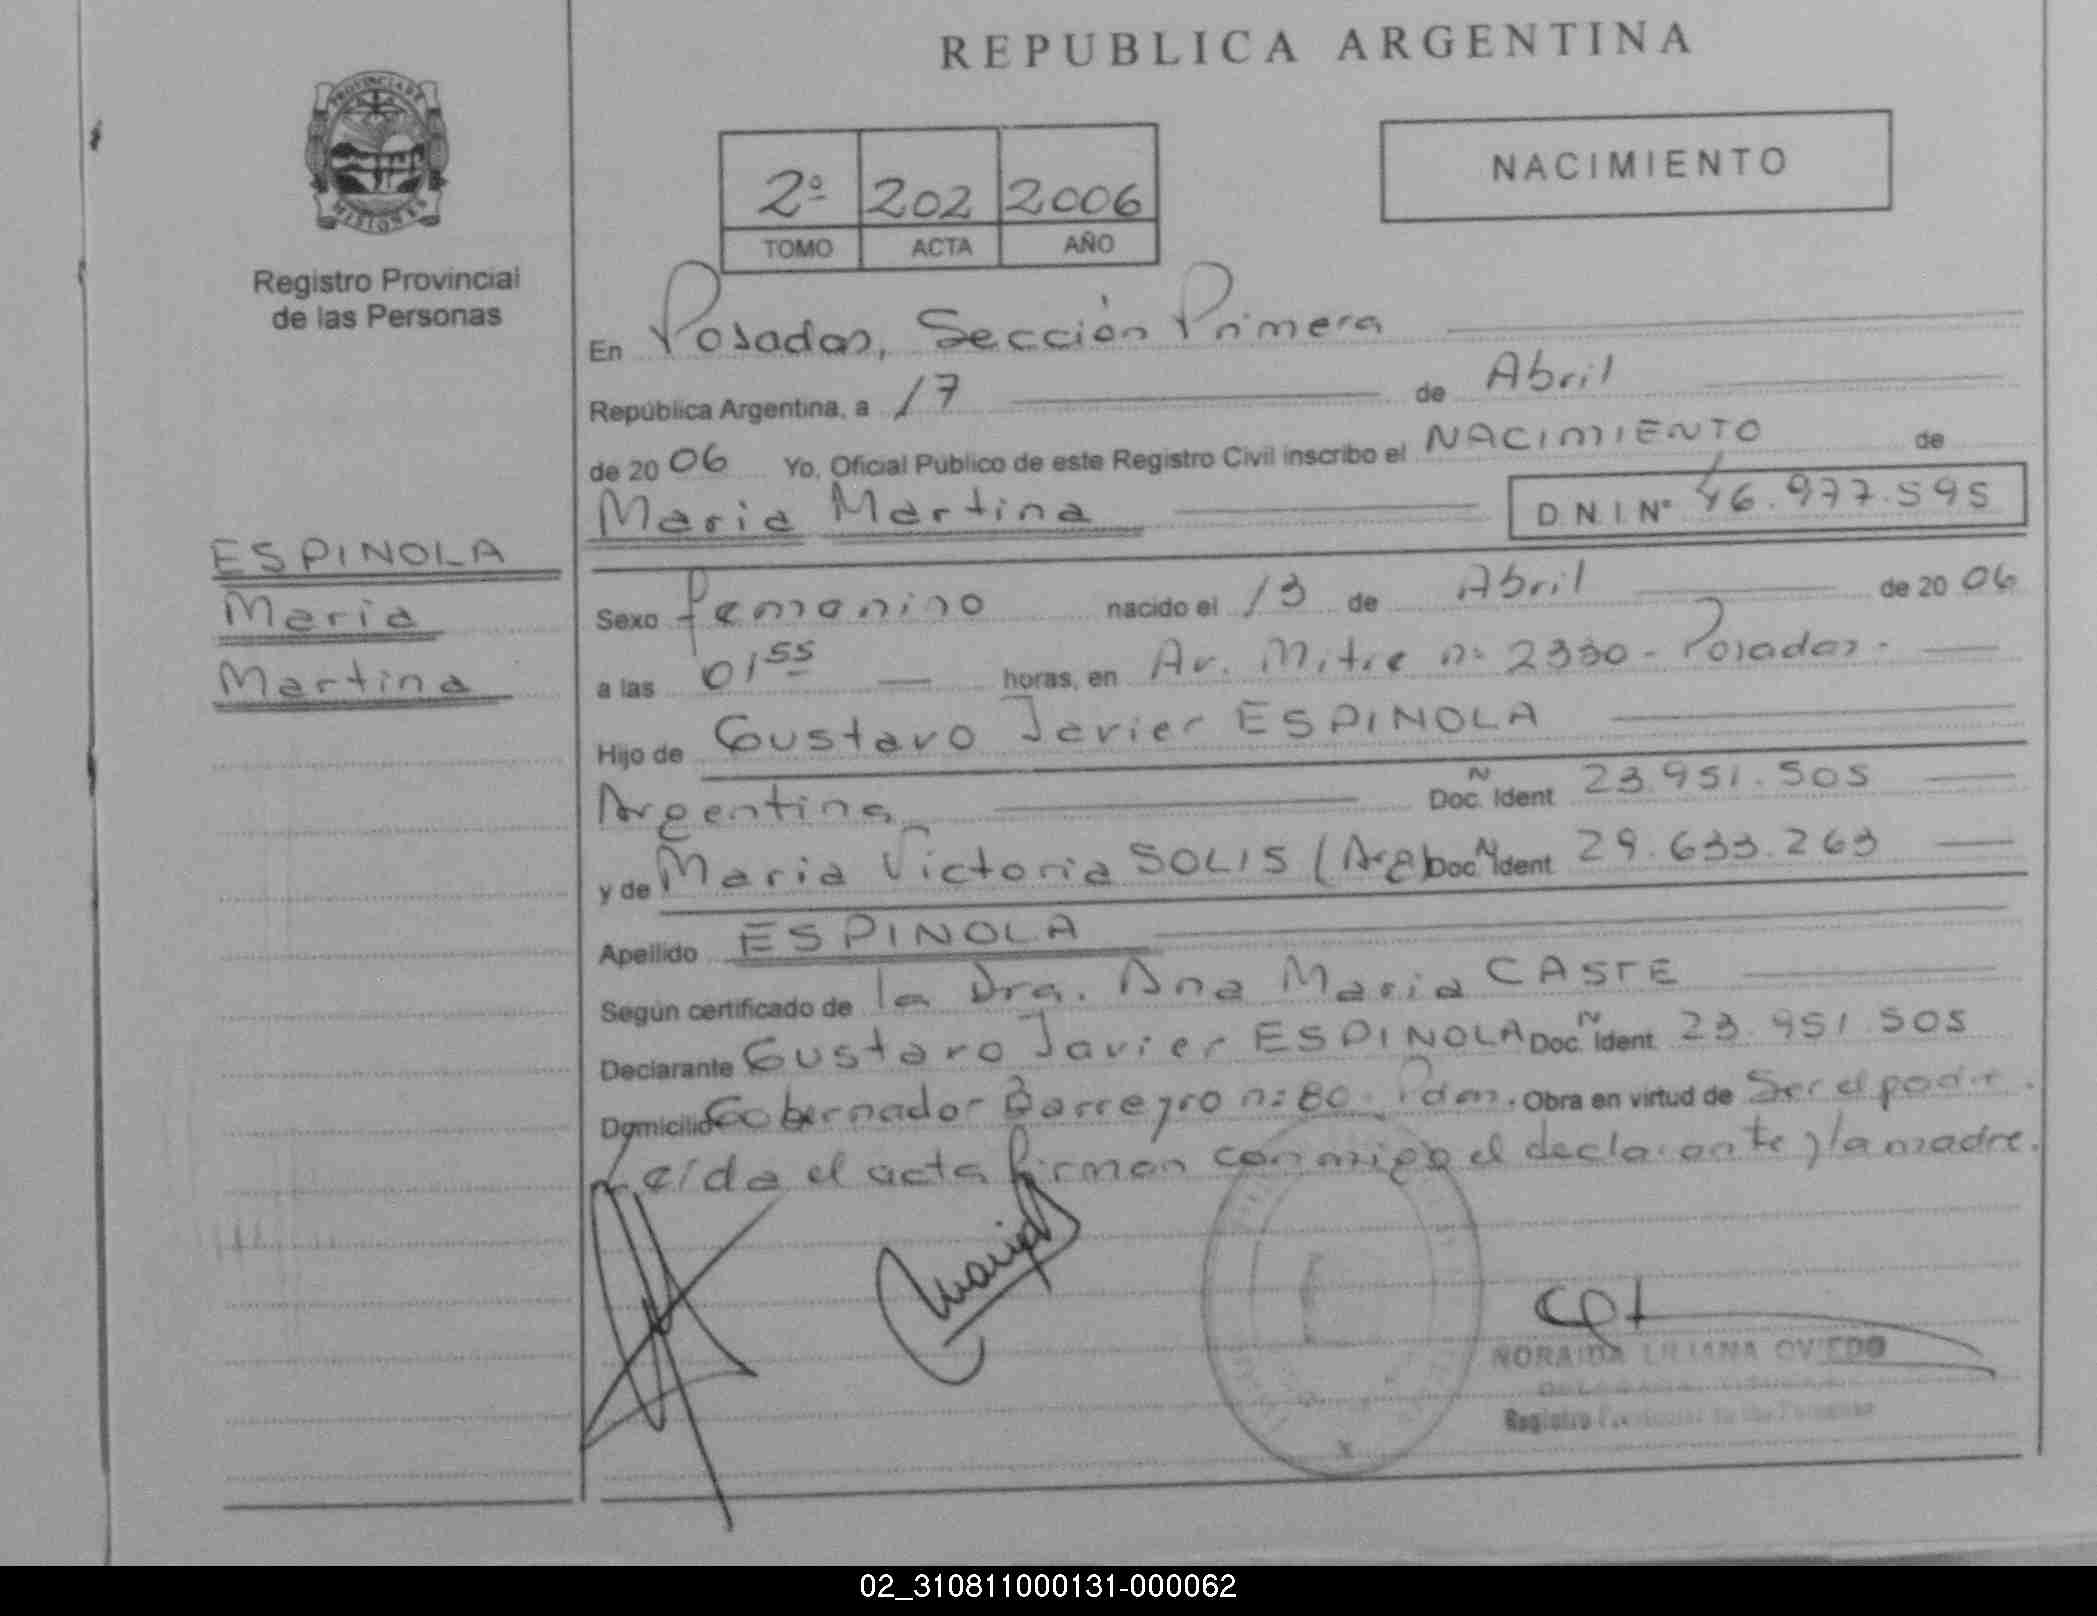 REPUBLICA ARGENTINA
PROVINCIA DE
MISIONES
Registro Provincial
de las Personas
2º 202 2006
TOMO ACTA AÑO
NACIMIENTO
En Posadas, Sección Primera
República Argentina, a 17 de Abril
de 20 06 Yo, Oficial Público de este Registro Civil inscribo el NACIMIENTO de
Maria Martina D N I Nº 46.977.595
ESPINOLA
Maria
Martina
Sexo femenino nacido el 13 de Abril de 20 06
a las 01 55 horas, en Av. Mitre nº 2330 - Posadas -
Hijo de Gustavo Javier ESPINOLA
Argentina Doc. N Ident 23.951.505
y de Maria Victoria SOLIS (Arg) Doc. N Ident 29.633.263
Apellido ESPINOLA
Según certificado de la Dra. Ana Maria CASTE
Declarante Gustavo Javier ESPINOLA Doc. N Ident. 23.951.505
Domicilio Gobernador Barreyro nº 80. Pdas. Obra en virtud de Ser el padre.
Leída el acta firman conmigo el declarante y la madre.
NORAIDA LILIANA OVIEDO
Registro Provincial de las Personas
02_310811000131-000062